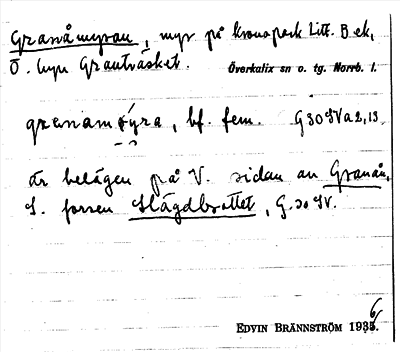 Granåmyran, myr på kronopark Litt. B. ek,
Ö. byn Grantväsket. Överkalix sn o. tg. Norrb. l.
granam ýra, bf. fem. G 30 SV a 2, 13
är belägen på V. sidan av Granån,
S. forsen Slägdbrottet, G. 30 SV.
EDVIN BRÄNNSTRÖM 1936.